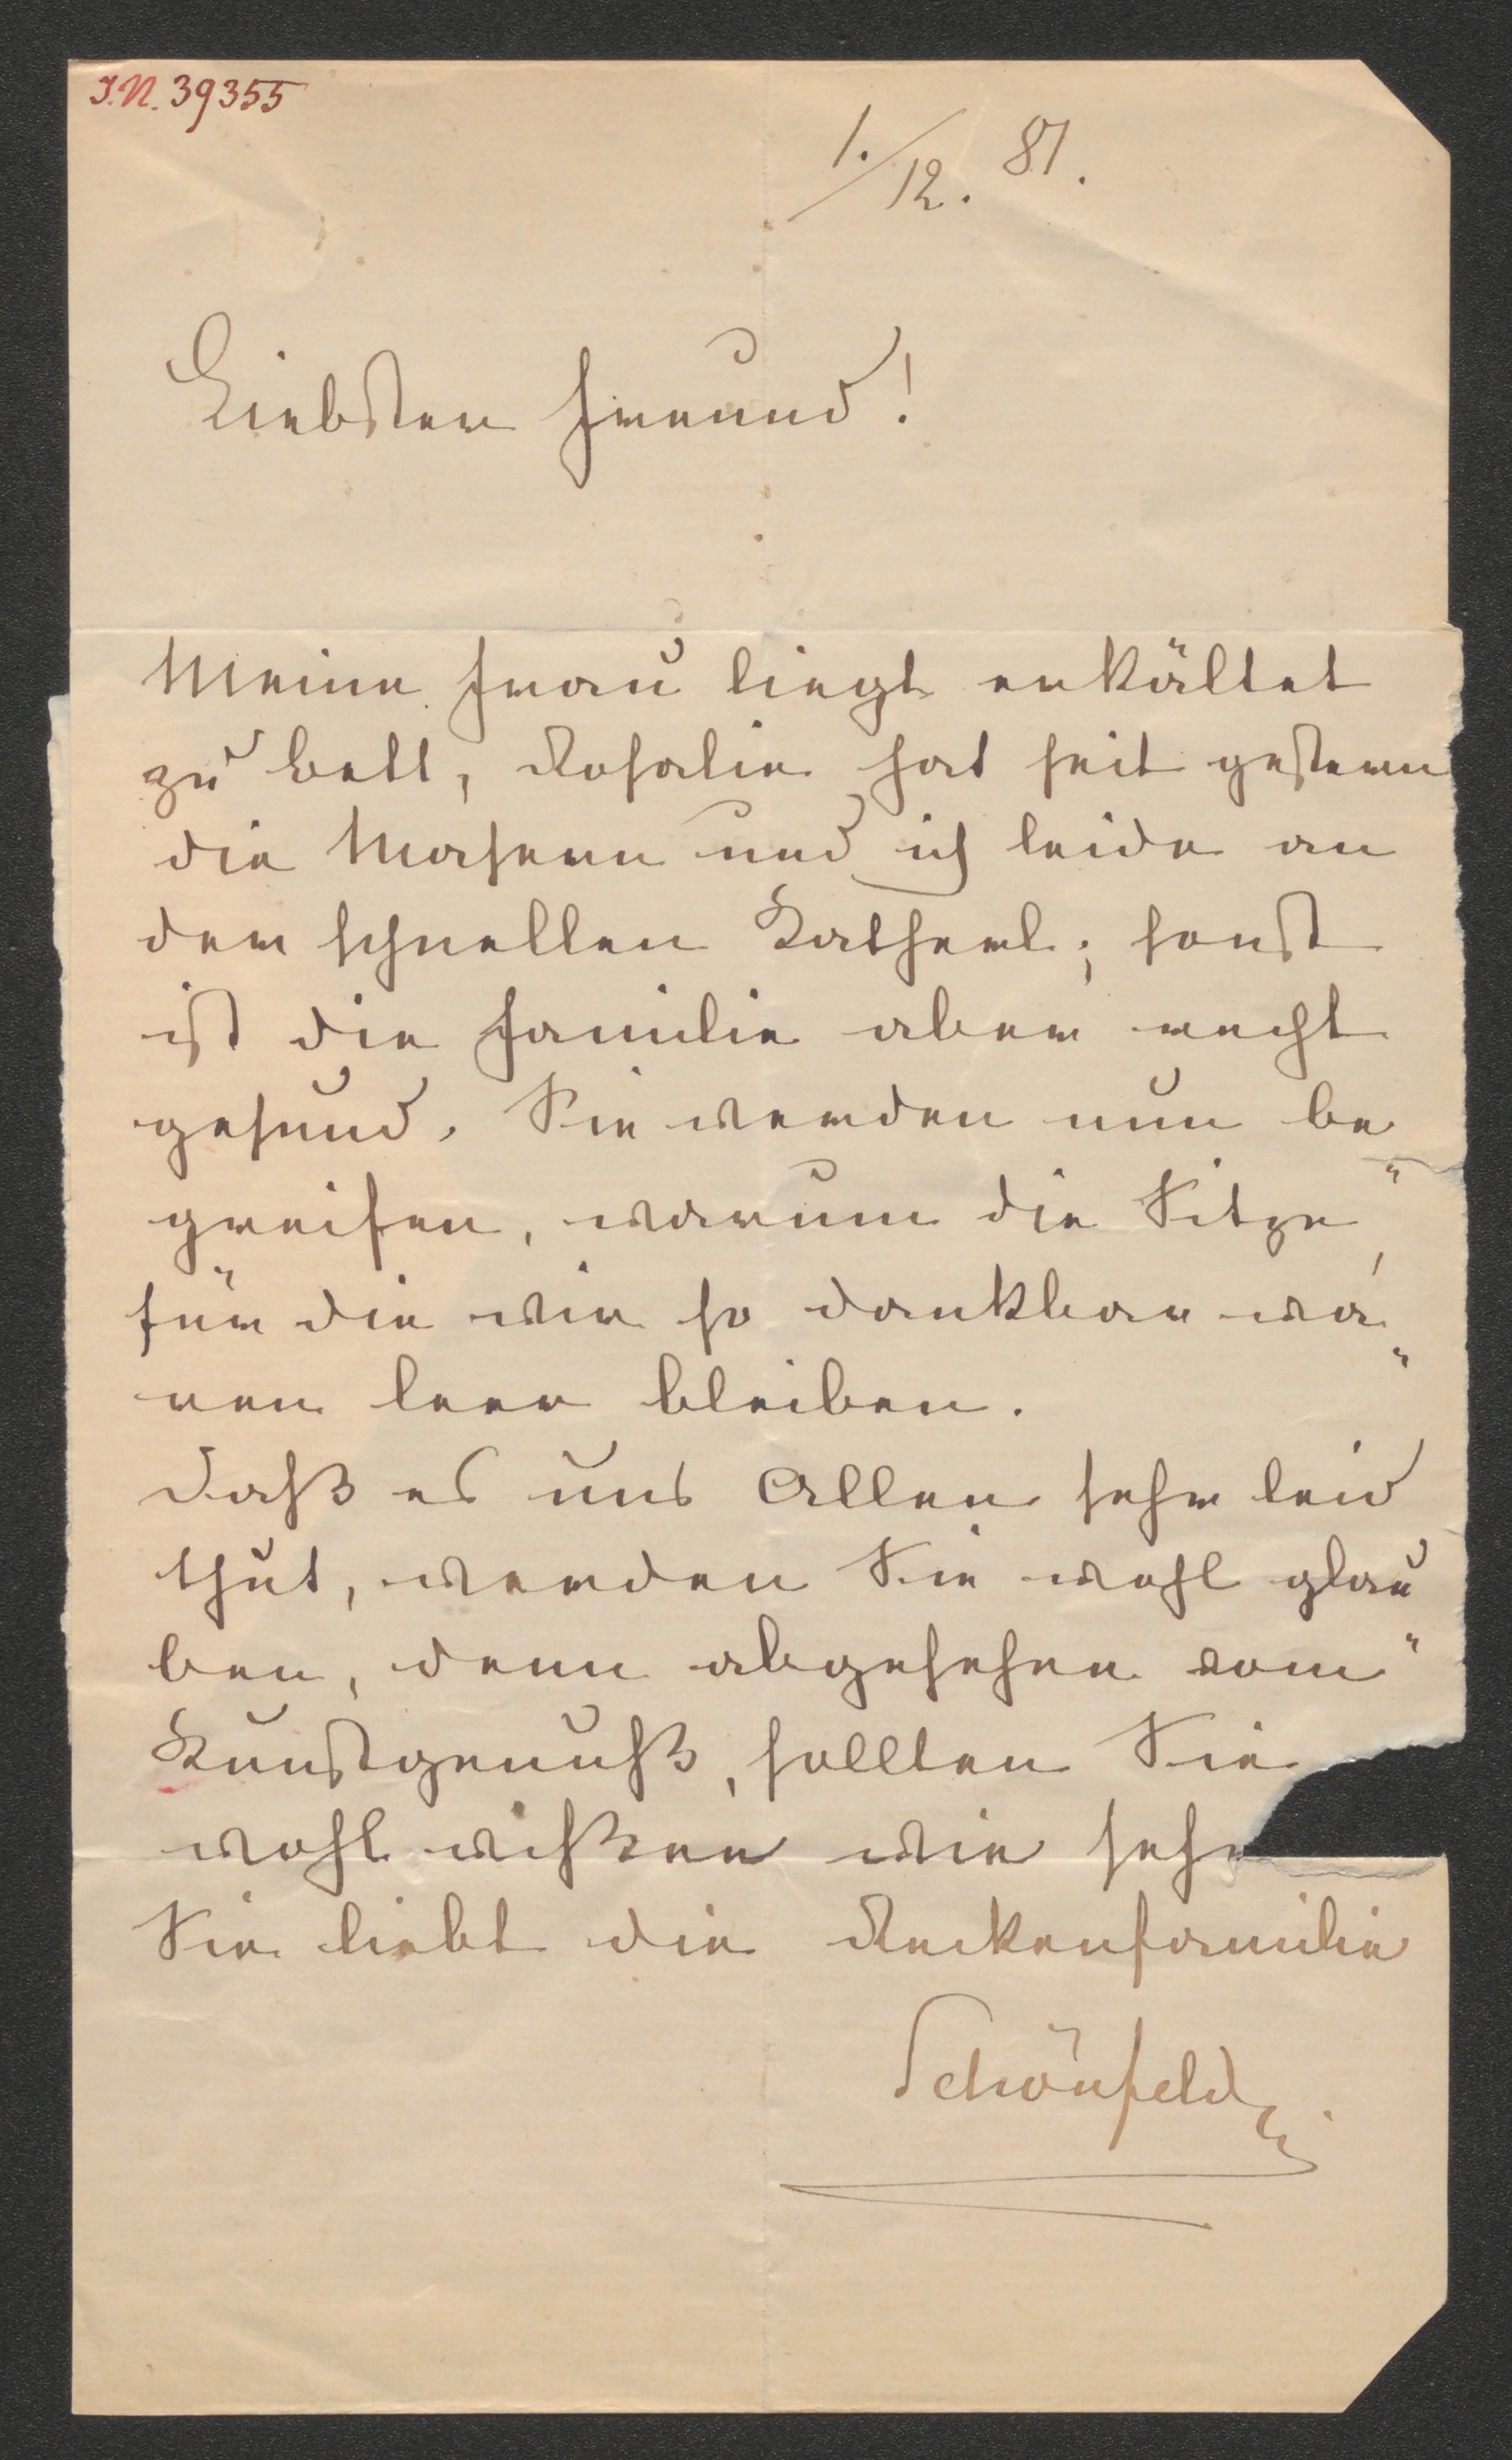 I.N. 39355
1./12. 81.
Liebster Freund!
Meine Frau liegt erkältet
zu Bett, Rosalie hat seit gestern
die Masern und ich leide an
der schnellen Katherl; sonst
ist die Familie aber recht
gesund. Sie werden nun be„
greifen, warum die Sitze,
für die wir so dankbar wa„
ren leer bleiben.
Daß es uns Allen sehr leid
thut, werden Sie wohl glau„
ben, denn abgesehen vom
Kunstgenuß, sollten Sie
wohl wißen wie sehr
Sie liebt die Reckenfamilie
Schönfeld